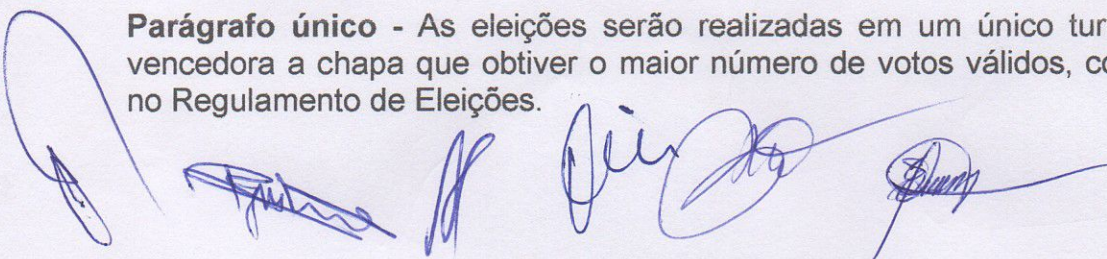 Parágrafo único - As eleições serão realizadas em um único tur
vencedora a chapa que obtiver o maior número de votos válidos, co
no Regulamento de Eleições.